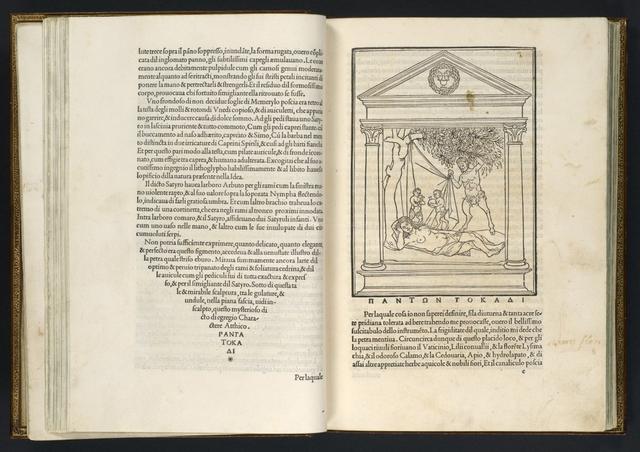 lute trece sopra il pãno soppresso, inundãte, la forma rugata, ouero cõplicata
dil inglomato panno, gli subtilissimi capegli æmulauano. Le coxe
erano ancora debitamente pulpidule cum gli carnosi genui moderatamente
al quanto ad se ritracti, monstrando gli sui stricti petali incitanti di
ponere la mano & pertractarli & strengerli. Et il residuo dil formosissimo
corpo, prouocaua chi fortuito simigliante ella ritrouato se fusse.
Vno frondoso di non decidue foglie di Memerylo poscia era retro al
la testa degli molli & rotondi Vnedi copioso, & di auiculette, che appareua
no garrire, & inducere causa di dolce somno. Ad gli pedi staua uno Satyro
in lasciuia pruriente & tutto commoto, Cum gli pedi caprei stante. cum
il buccamento ad naso adhærito, capreato & Simo, Cũ la barba nel mento
Et per questo pari modo alla testa, cum pilate auricule, & di fronde incoronato,
cum effigie tra caprea, & humana adulterata. Excogitai che al suo acutissimo
ingegnio il lithoglypho habilissimamente & al libito hauesse
lo pificio dilla natura præsente nella Idea.
Il dicto Satyro hauea larboro Arbuto per gli rami cum la sinistra mano
uiolente rapto, & al suo ualore sopra la soporata Nympha flectendolo,
indicaua di farli gratiosa umbra. Et cum laltro brachio traheua lo extremo
di una cortinetta, che era negli rami al tronco proximi innodata.
Intra larboro comaro, & il Satyro, assideuano dui Satyruli infanti. Vno
cum uno uaso nelle mane, & laltro cum le sue inuolupate di dui circumuoluti
serpi.
Non potria sufficiente exprimere, quanto delicato, quanto elegante,
& perfecto era questo figmento, accedeua alla uenustate illustro dilla
petra quale strìso eburo. Miraua summamente ancora larte dil
optimo & peruio tripanato degli rami & foliatura cedrina, & dille
auicule cum gli pediculi sui di tutta exactura & expresso,
& per il simigliante dil Satyro. Sotto di questa tale
& mirabile scalptura, tra le gulature, &
undule, nella piana fascia, uidi inscalpto,
questo mysterioso dicto
di egregio Charactere
Atthico.
ΡΑΝΤΑ
ΤΟΚΑ
ΔΙ
Per laquale
ΠΑΝΤΩΝ ΤΟΚΑΔΙ
Per laquale cosa io non saperei definire, si la diuturna & tanta acre sete
pridiana tolerata ad bere trahendo me prouocasse, ouero il bellissimo
suscitabulo dello instrumẽto. La frigiditate dil quale, inditio mi dede che
la petra mentiua. Circuncirca dunque di questo placido loco, & per gli
loquaci riuuli fioriuano il Vaticinio, Lilii conuallii, & la florẽte Lysimachia,
& il odoroso Calamo, & la Cedouaria, Apio, & hydrolapato, & di
assai altre appretiate herbe aquicole & nobili fiori, Et il canaliculo poscia
e